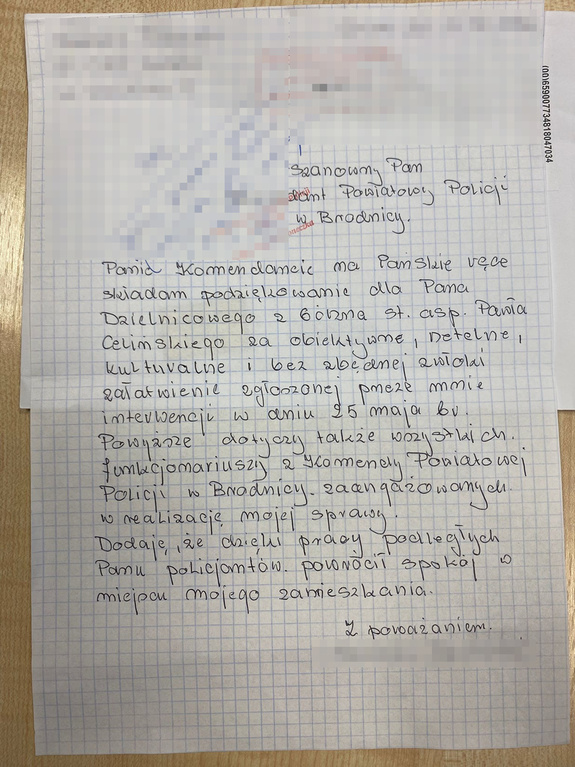 (00)659007734818047034
Szanowny Pan
dant Powiatowy Policji
w Brodnicy.
Panie Komendancie na Pańskie ręce
składam podziękowanie dla Pana
Dzielnicowego z Górzna st. asp. Pawła
Celińskiego za obiektywne, rzetelne,
kulturalne i bez zbędnej zwłoki
załatwienie zgłoszonej przeze mnie
interwencji w dniu 25 maja br.
Powyższe dotyczy także wszystkich
funkcjonariuszy z Komendy Powiatowej
Policji w Brodnicy. zaangażowanych
w realizację mojej sprawy.
Dodaję, że dzięki pracy podległych
Panu policjantów. powrócił spokój w
miejscu mojego zamieszkania.
Z poważaniem.